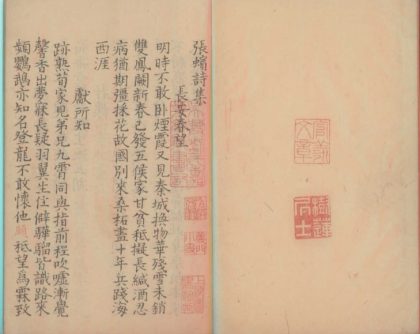 張蠙詩集
長安春望
明時不敢卧煙霞又見秦城換物華殘雪未銷
雙鳳闕新春已發五侯家甘貧秪擬長緘酒忍
病猶期彊採花故國別來桑柘盡十年兵踐海
西涯
獻所知
跡熟荀家見弟兄九霄同與指前程吹噓漸覺
馨香出夢寐長疑羽翼生住僻驊騮皆識路來
頻鸚鵡亦知名登龍不敢懷他願秪望為霖致